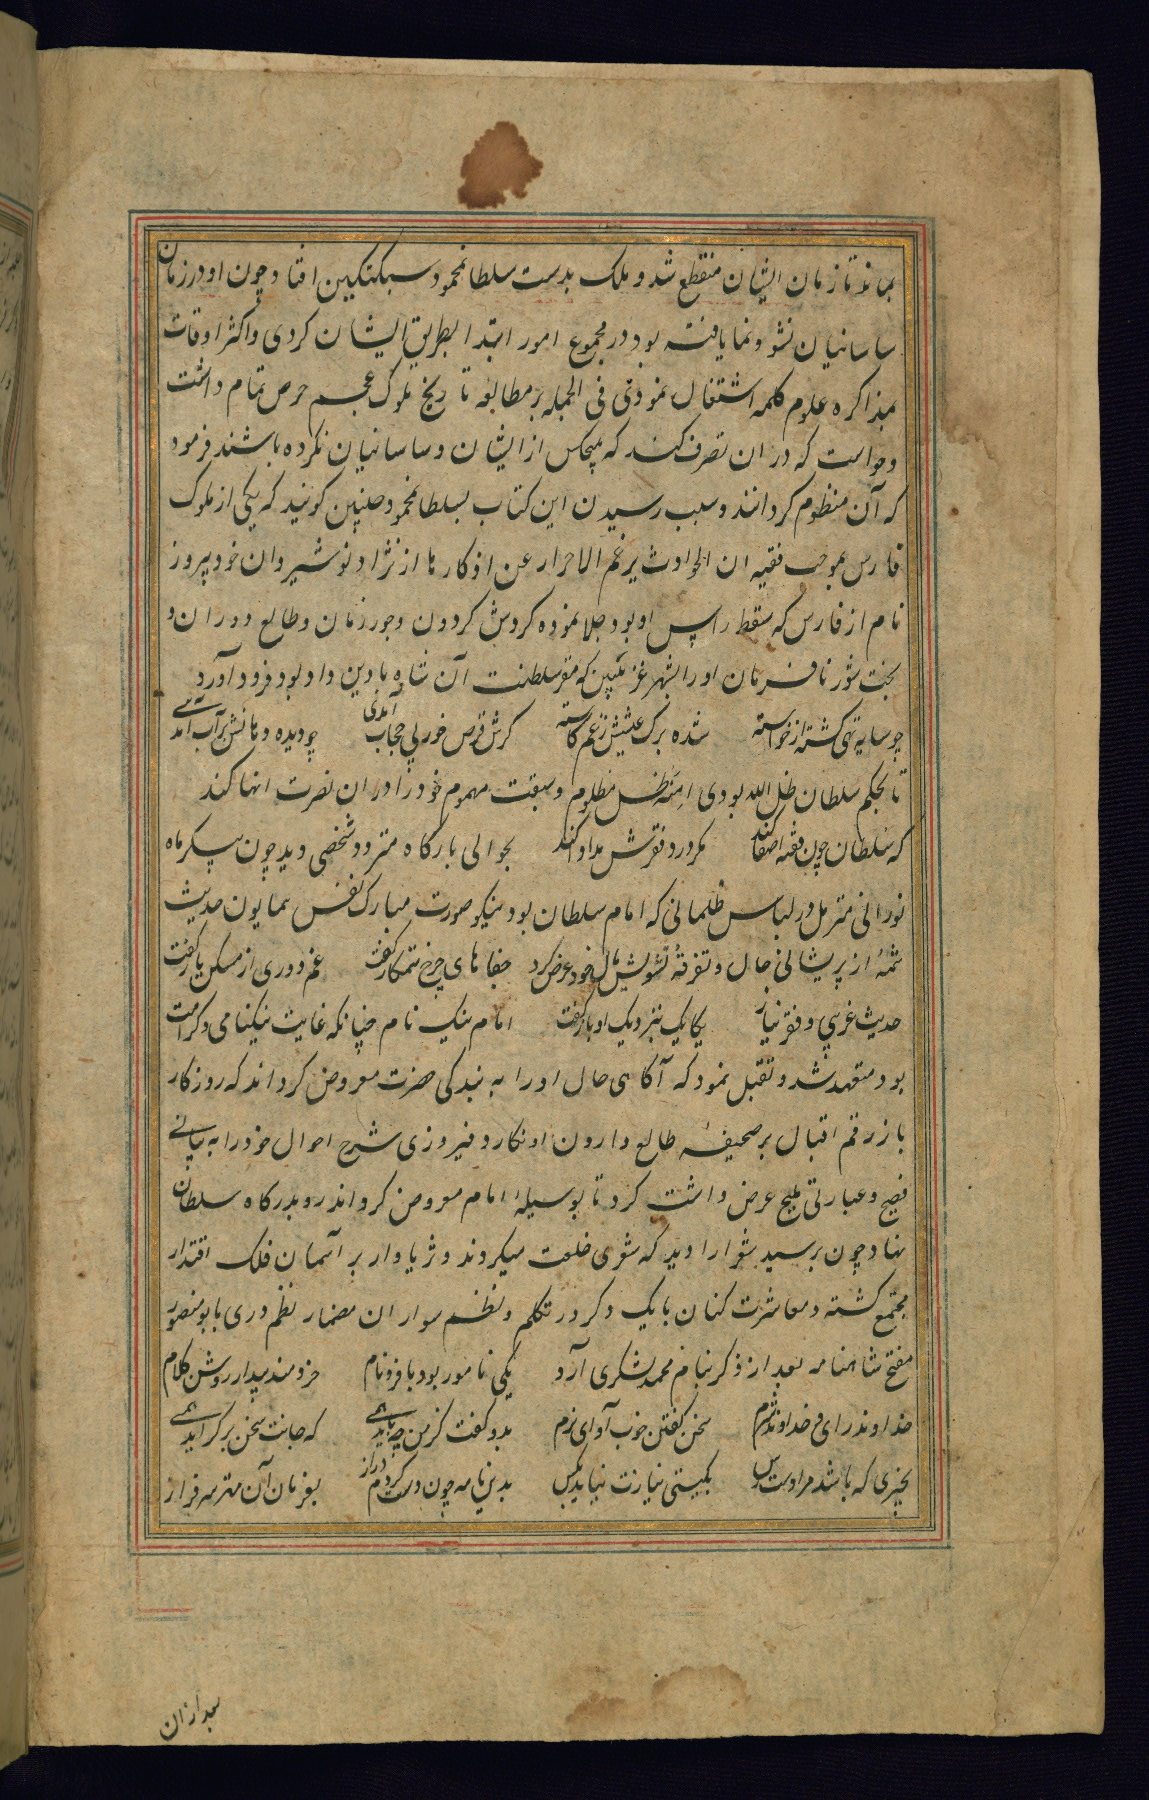 بماند تا زمان ایشان منقطع شد و ملک بدست سلطان محمود سبکتکین افتاد چون او در زمان
ساسانیان نشو و نما یافته بود در مجموع امور ابتدا بطریق ایشان کردی و اکثر اوقات
بمذاکره علوم کلمه اشتغال نمودی فی الجمله بر مطالعه تاریخ ملوک عجم حرص تمام داشت
و خواست که در ان تصرف کند که هیچکس از ایشان و ساسانیان نکرده باشند فرمود
که آن منظوم کردانند و سبب رسیدن این کتاب بسلطان محمود چنین کویند که یکی از ملوک
فارس بموجب قضیه ان الحوادث یرغم الاحرار عن اوکارها از نژاد نوشیروان خور پیروز
نام از فارس که مسقط راس او بود جلا نموده کردش کردون و جور زمان و طالع دوران و
بخت شور نافرمان او را بشهر غزنین که مقر سلطنت آن شاه با دین و داد بود فرود آورد
چو سایه تهی کشته از خواسته شده برک عیشش ز غم کاسته کرش قرص خور بی حجاب آمدی چو دیده دهانش پر آب آمدی
تا بحکم سلطان ظل الله بودی مظلوم و مهموم خود را در ان نصرت انها کند
که سلطان چون قصه اصغا کند مکر درد فقرش مداوا کند بحوالی بارکاه متردد شخصی دید چون پیکر ماه
نورانی متزمل در لباس ظلمانی که امام سلطان بود نیکو صورت مبارک نفس همایون حدیث
شمهٔ از پریشانی حال و تفرقهٔ تشویش بال خود عرض کرد جفاهای چرخ ستمکار کفت غم دوری از مسکن و یار کفت
حدیث غریبی و فقر و نیاز یکایک بنزدیک او باز کفت امام نیک نام چنانکه غایت نیکنامی و کرامت
بود متعهد شد و تقبل نمود که آکاهی حال او را به بندکی حضرت معروض کرداند که روزکار
باز رقم اقبال بر صحیفهٔ طالع وارون او نکارد فیروزی شرح احوال خود را به بیانی
فصیح و عبارتی ملیح عرض داشت کرد تا بوسیلهٔ امام معروض کرداند رو بدرکاه سلطان
نهاد چون برسید شعرا را دید که شعری خلعت میکروند و ثریا وار بر آسمان فلک اقتدار
مجتمع کشته و معاشرت کنان با یک دکر در تکلم و نظم سواران مضمار نظم دری بابو منصور
مفتح شاهنامه بعد از ذکر بنام محمد لشکری آرد یکی نامور بود با فر و نام خردمند بیدار روشن کلام
خداوند رای و خداوند شرم سخن کفتن خوب آوای نرم بدو کفت کز من چه باید همی که جانت سخن بر کراید همی
بچیزی که باشد مرا دست رس بکیتی نیازت نیاید بکس بدین نامه چون دست کردم دراز بفرمان آن مهتر سرفراز
بعد از ان